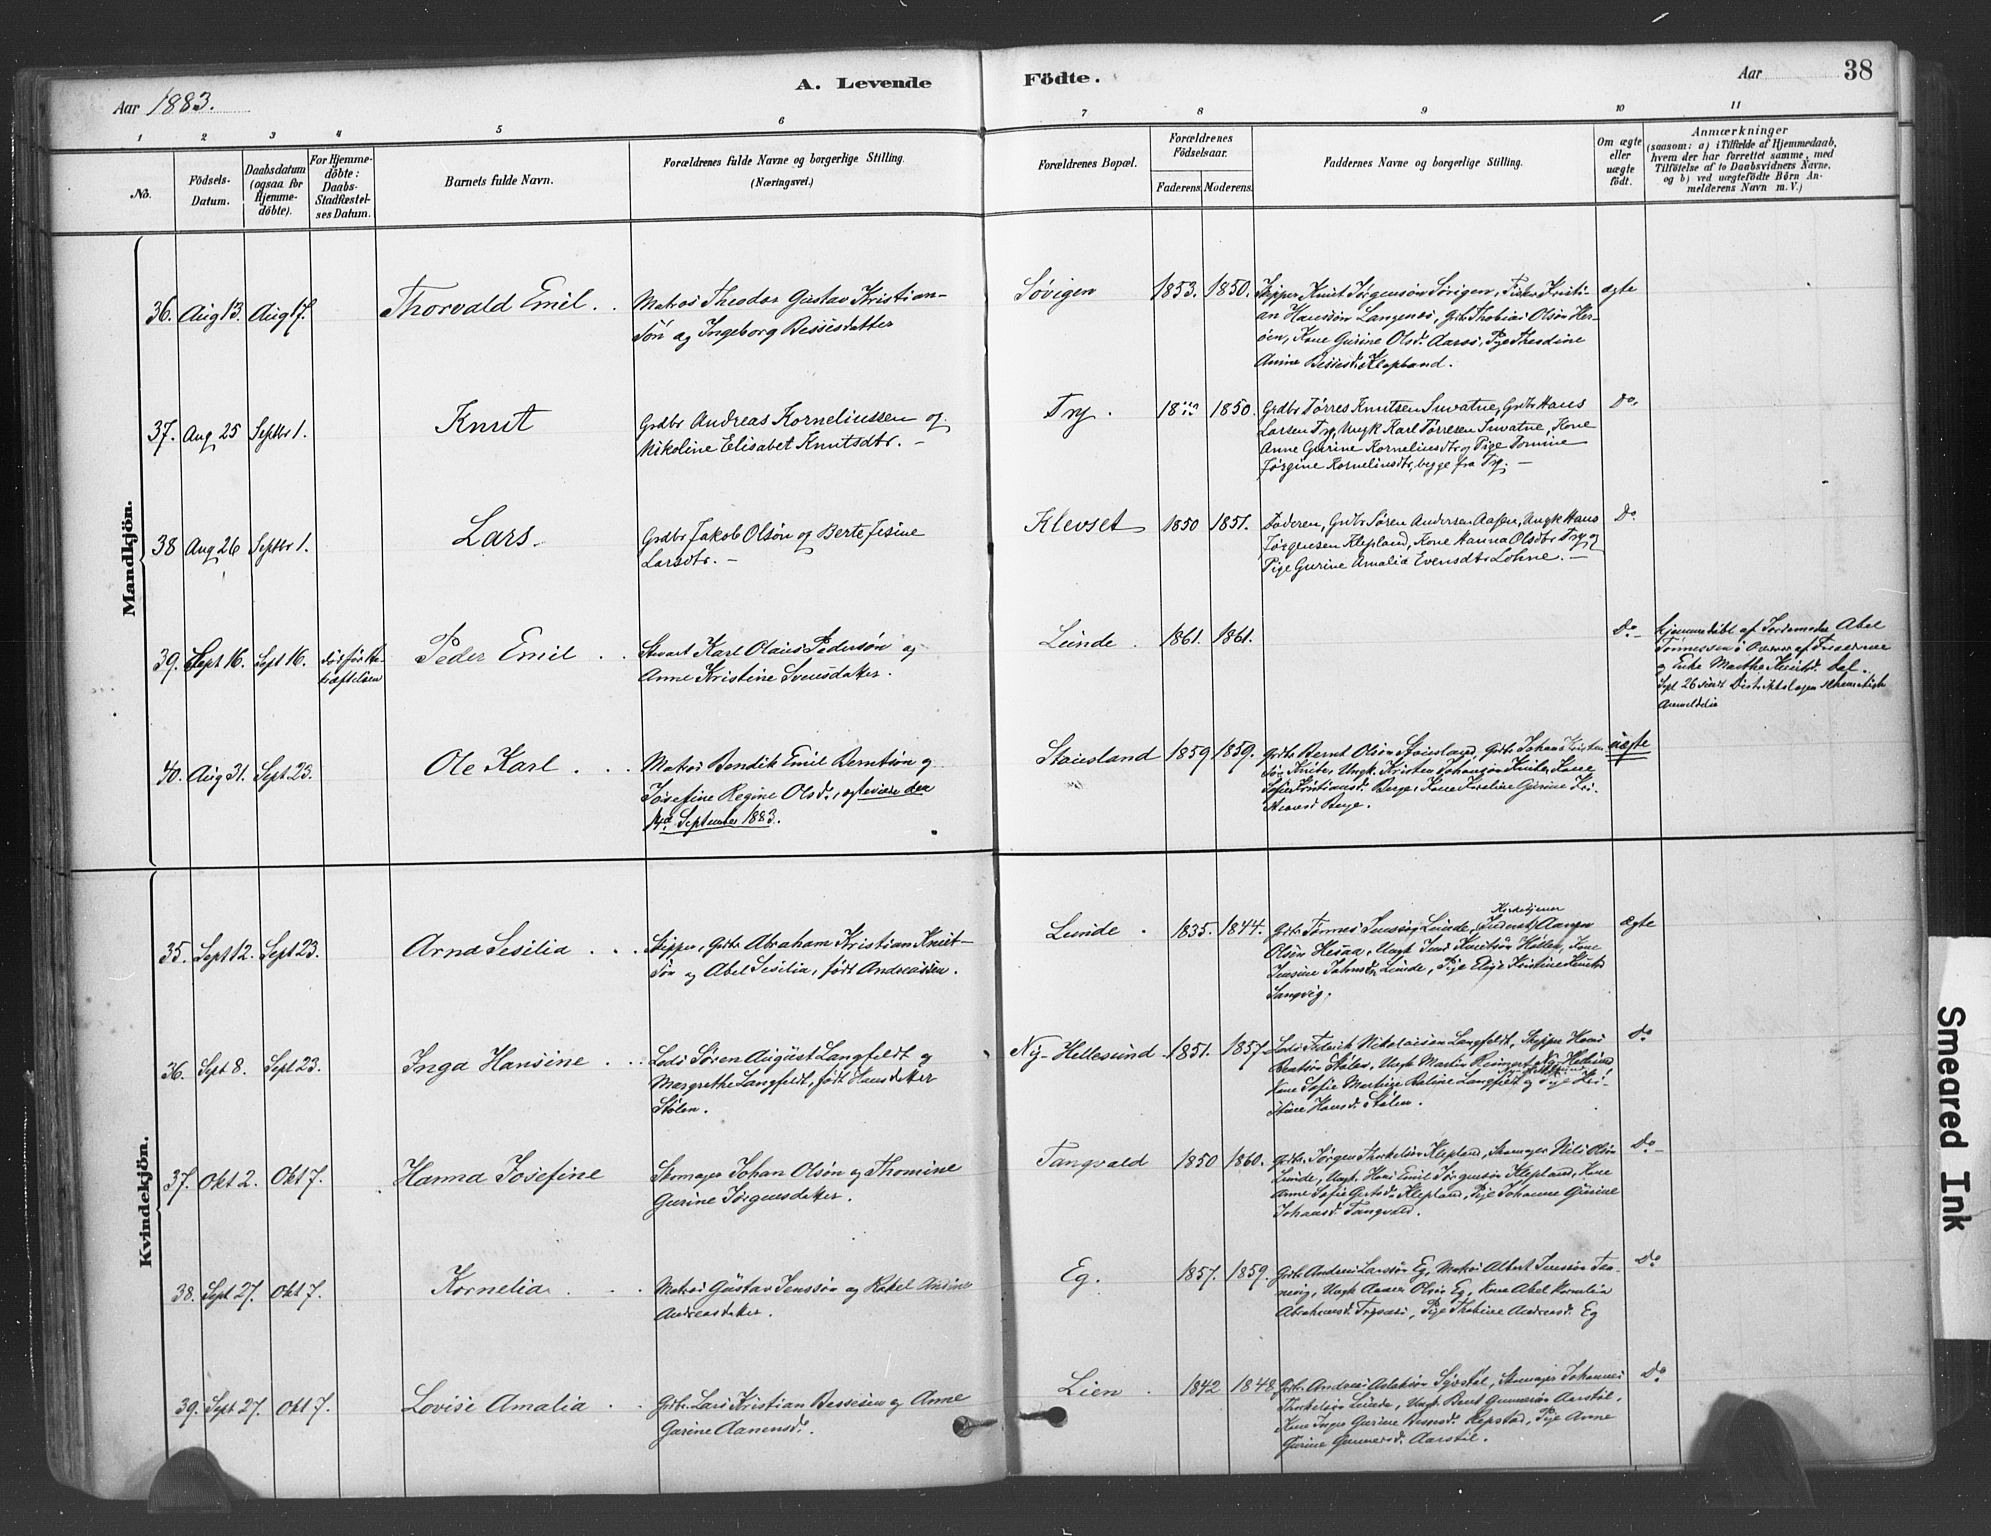 Aar 1883.
A. Levende
Födte.
Aar
38
1 2 3 4 5 6 7 8 9 10 11
No.
Födsels-
Datum.
Daabsdatum
(ogsaa for
Hjemme-
döbte).
For Hjemme-
döbte:
Daabs-
Stadfæstel-
ses Datum.
Barnets fulde Navn.
Forældrenes fulde Navne og borgerlige Stilling.
(Næringsvei.)
Forældrenes Bopæl.
Forældrenes
Födselsaar.
Faderens. Moderens.
Faddernes Navne og borgerlige Stilling.
Om ægte
eller
uægte
födt.
Anmærkninger
(saasom: a) i Tilfælde af Hjemmedaab,
hvem der har forrettet samme, med
Tilföielse af to Daabsvidners Navne,
og b) ved uægtefödte Börn An-
melderens Navn m. V.)
Mandkjön.
36. Aug 13. Aug 17. Thorvald Emil. Matros Theodor Gustav Kristian-
søn og Ingeborg Bessesdatter
Søvigen 1853. 1850. Skipper Knut Jørgensøn Søvigen, Fisker Kristi-
an Hanssøn Langenes, Grdbr Thobias Olsøn Her-
øen, Kone Gurine Olsd. Aaros, Pige Theodine
Amine Bessesd. Klepland.
ægte
37. Aug 25 Septbr 1. Knut Grdbr Andreas Korneliussen og
Nikoline Elisabet Knutsdtr. —
Try. 18 1850. Grdbr Tørres Knutsen Suvatne, Grdbr Hans
Larsen Try, Ungk Karl Tørresen Suvatne, Kone
Anne Gurine Korneliusdtr og Pige Tomine
Jørgine Korneliusdtr, begge fra Try. —
Do.
38 Aug 26 Septbr 1. Lars. Grdbr Jakob Olsøn og Berte Jesine
Larsdtr. —
Klevset 1850 1851. Faderen, Grdbr Søren Andersen Aasen, Ungk Hans
Jørgensen Klepland, Kone Hanna Olsdtr Try og
Pige Gurine Amalia Evensdtr Lohne. —
Do
39. Sept 16. Sept 16. død før be-
kræftelsen
Peder Emil . . Stuart Karl Olaus Pedersøn og
Anne Kristine Svensdatter.
Lunde . 1861. 1861.
Do —
hjemmedøbt af Jordemoder Abel
Tønnessen i Overvær af Faderen
og Enke Marthe Knutsd. Dal.
Sept 26 sendt Distriktslægen
Anmeldelse
40. Aug 31. Sept 23. Ole Karl . . . Matros Bendik Emil Berntsøn og
Josefine Regine Olsd., ægteviede den
14de September 1883.
Stousland 1859 1859. Grdbr Bernt Olsøn Stousland, Grdbr Johans Kristen-
søn Knibe, Ungk. Kristen Johansøn Knibe, Kone
Sofie Kristiansd. Berge, Kone Karoline Gurine
Berge.
uægte
Kvindekjön.
35. Sept 12. Sept 23. Arna Sesilia . . . Skipper, Grdbr. Abraham Kristian Knut-
søn og Abel Sesilia, født Andreassen.
Lunde . 1835. 1844. Grdbr Tønnes Jenssøn Lunde, Kirketjener
Aanen
Olsøn Hesaa, Ungk Knutsøn Høllen, Kone
Jensine Johnsd. Lunde, Pige Elise Kristine Knutsd
Langvig.
ægte
36. Sept 8. Sept 23. Inga Hansine . . Lods Søren August Langfeldt og
Margrethe Langfeldt, født Hansdatter
Stølen.
Ny-Hellesund 1851. 1857 Lods Federik Nikolaisøn Langfeldt, Skipper Hans
Stølen, Ungk Martin Ny Hellesund
Kone Sofie Martine Langfeldt og Pige Kri-
stine Hansd. Stølen.
do
37. Okt 2. Okt 7. Hanna Josefine Skomager Johan Olsøn og Thomine
Gurine Jørgensdatter.
Tangvald 1850 1860. Grdbr. Jørgen Therkelsøn Klepland, Skomager Nils Olsøn
Lunde, Ungk. Hans Emil Jørgensøn Klepland, Kone
Anne Sofie Gertsd. Klepland, Pige Johanne Gurine
Johansd. Tangvald.
Do —
38. Sept 27. Okt 7. Kornelia . . . Matros Gustav Jenssøn og Rakel Andine
Andreasdatter.
Eg. 1857. 1859. Grdbr Andreas Larssøn Eg, Matros Albert Jenssøn
Ungk Aanen Olsøn Eg, Kone Abel Kornelia
Abrahamsd. , Pige Thobine Andreasd. Eg
Do
39. Sept 27. Okt 7. Lovise Amalia . . Grdbr. Lars Kristian Bessesen og Anne
Gurine Aanensd.
Lien . 1842 1848 Grdbr. Andreas Aslaksøn , Skomager Johannes
Therkelsøn Lunde, Ungk. Bent Gunnersøn Aarstøl,
Kone Inger Gurine Bessesd. Repstad, Pige Anne
Gurine Gunnersd. Aarstøl.
Do
Smeared Ink